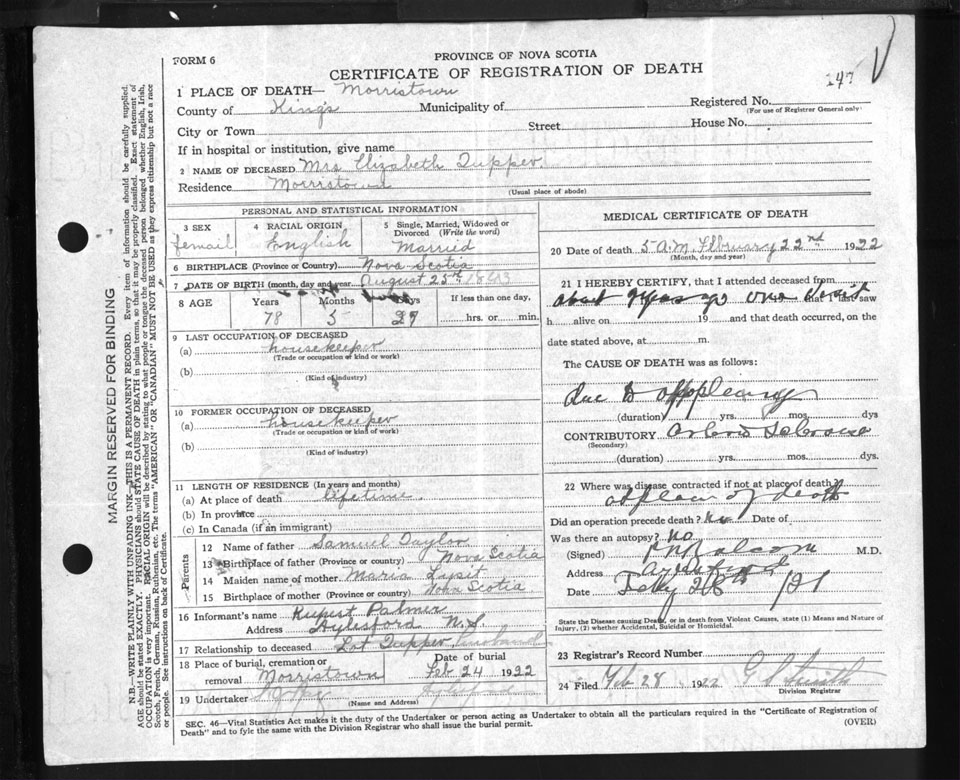 FORM 6
PROVINCE OF NOVA SCOTIA
CERTIFICATE OF REGISTRATION OF DEATH
147
1 PLACE OF DEATH— Morristown
County of Kings Municipality of Registered No.
(For use of Registrar General only)
City or Town Street House No.
If in hospital or institution, give name
2 NAME OF DECEASED Mrs Elizabeth Tupper
Residence Morristown
(Usual place of abode)
PERSONAL AND STATISTICAL INFORMATION
3 SEX 4 RACIAL ORIGIN 5 Single, Married, Widowed or Divorced (Write the word)
femail English Married
6 BIRTHPLACE (Province or Country) Nova Scotia
7 DATE OF BIRTH (month, day and year) August 25th 1843
8 AGE Years Months Days If less than one day,
78 5 27 hrs. or min.
9 LAST OCCUPATION OF DECEASED
(a) housekeeper
(Trade or occupation or kind or work)
(b)
(Kind of industry)
10 FORMER OCCUPATION OF DECEASED
(a) housekeeper
(Trade or occupation or kind of work)
(b)
(Kind of industry)
11 LENGTH OF RESIDENCE (In years and months)
(a) At place of death lifetime
(b) In province
(c) In Canada (if an immigrant)
Parents
12 Name of father Samuel Taylor
13 Birthplace of father (Province or country) Nova Scotia
14 Maiden name of mother Maria
15 Birthplace of mother (Province or Country) Nova Scotia
16 Informant's name Rupert Palmer
Address Aylesford N.S
17 Relationship to deceased Lot Tupper husband
18 Place of burial, cremation or removal Morristown Date of burial Feb 24 1922
19 Undertaker
(Name and Address)
MEDICAL CERTIFICATE OF DEATH
20 Date of death 5 A.M. February 22nd 1922
(Month, day and year)
21 I HEREBY CERTIFY, that I attended deceased from
about saw
h alive on 19 and that death occurred, on the
date stated above, at m.
The CAUSE OF DEATH was as follows:
Due to
(duration) yrs. mos. dys
CONTRIBUTORY
(Secondary)
(duration) yrs. mos. dys.
22 Where was disease contracted if not at place of death?
at place of death
Did an operation precede death? No Date of
Was there an autopsy? No
(Signed) M.D.
Address Aylesford
Date
State the Disease causing Death, or in death from Violent Causes, state (1) Means and Nature of Injury, (2) whether Accidental, Suicidal or Homicidal.
23 Registrar's Record Number
24 Filed Feb 28 1922
Division Registrar
SEC. 46—Vital Statistics Act makes it the duty of the Undertaker or person acting as Undertaker to obtain all the particulars required in the "Certificate of Registration of
Death" and to fyle the same with the Division Registrar who shall issue the burial permit. (OVER)
MARGIN RESERVED FOR BINDING
N.B.—WRITE PLAINLY WITH UNFADING INK—THIS IS A PERMANENT RECORD. Every item of information should be carefully supplied.
AGE should be stated EXACTLY. PHYSICIANS should STATE CAUSE OF DEATH in plain terms, so that it may be properly classified. Exact statement of
OCCUPATION is very important. RACIAL ORIGIN will be described by stating to what people or tongue the deceased person belonged whether English, Irish,
Scotch, French, German, Russian, Ruthenian, etc. The terms "AMERICAN" OR "CANADIAN" MUST NOT BE USED as they express citizenship but not a race
or people. See instructions on back of Certificate.